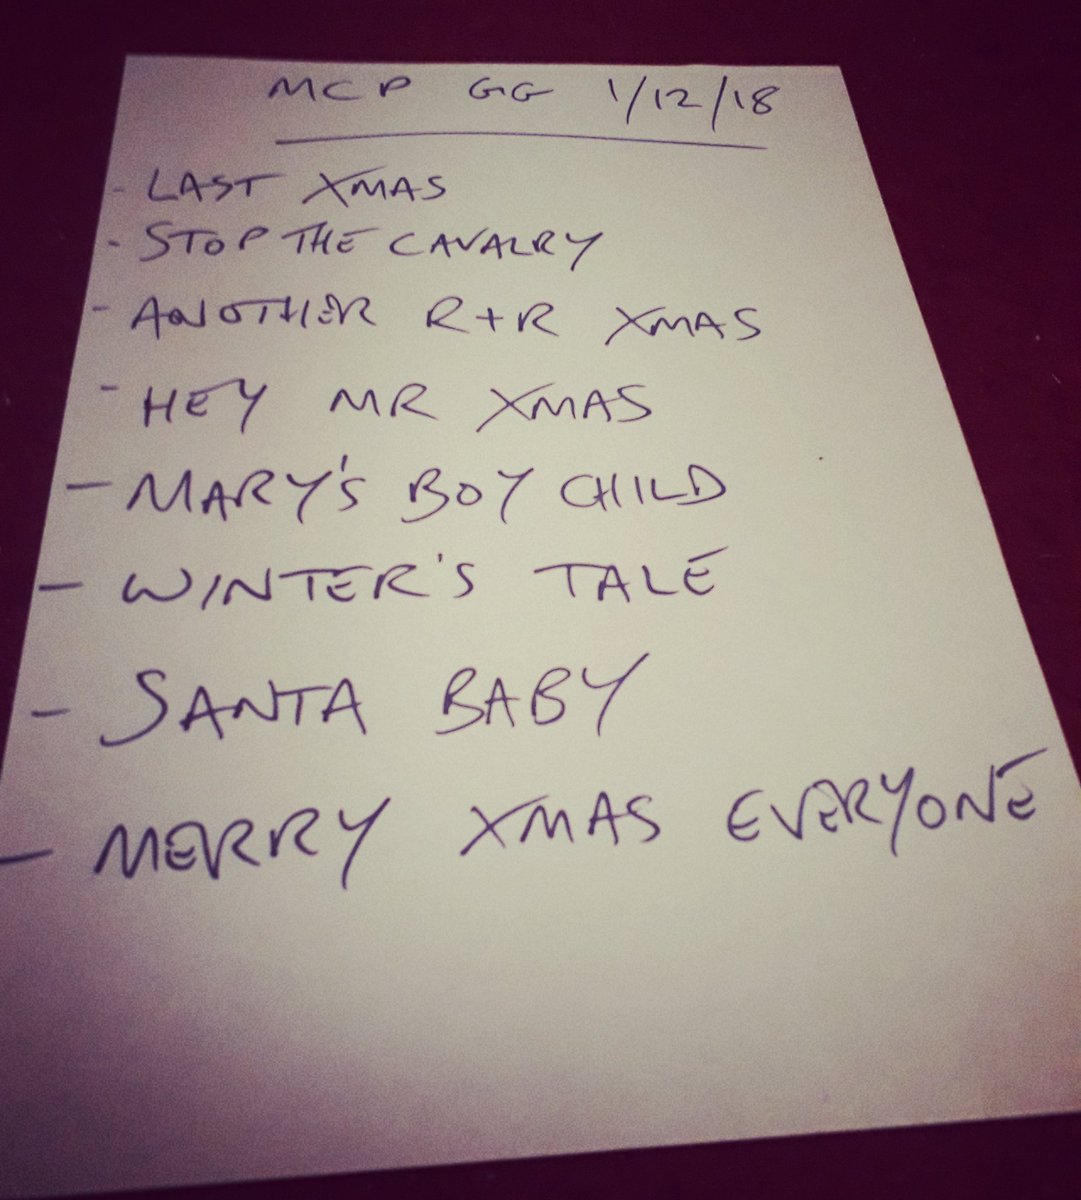 MCP GG 1/12/18
- LAST XMAS
- STOP THE CAVALRY
- ANOTHER R+R XMAS
- HEY MR XMAS
- MARY'S BOY CHILD
- WINTER'S TALE
- SANTA BABY
- MERRY XMAS EVERYONE